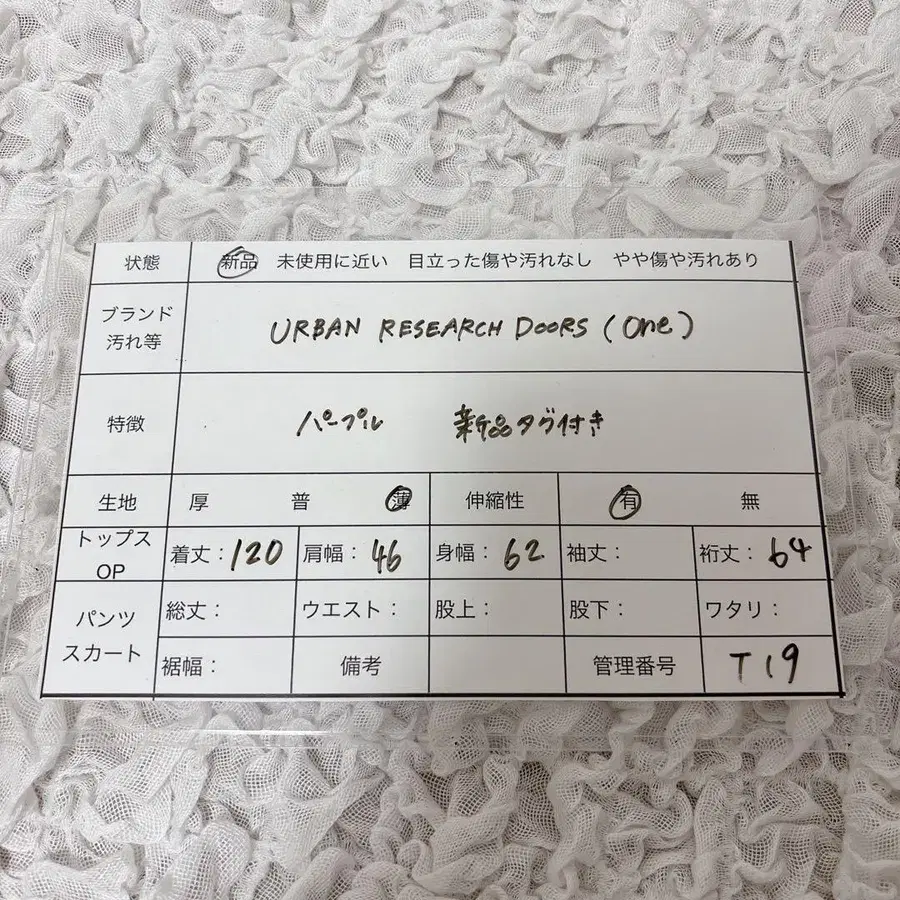 状態 新品 未使用に近い 目立った傷や汚れなし やや傷や汚れあり
ブランド
汚れ等
URBAN RESEARCH DOORS (One)
特徴 パープル 新品タグ付き
生地 厚 普 薄 伸縮性 有 無
トップス
OP
着丈：120 肩幅：46 身幅：62 袖丈： 裄丈：64
パンツ
スカート
総丈： ウエスト： 股上： 股下： ワタリ：
裾幅： 備考 管理番号 T19